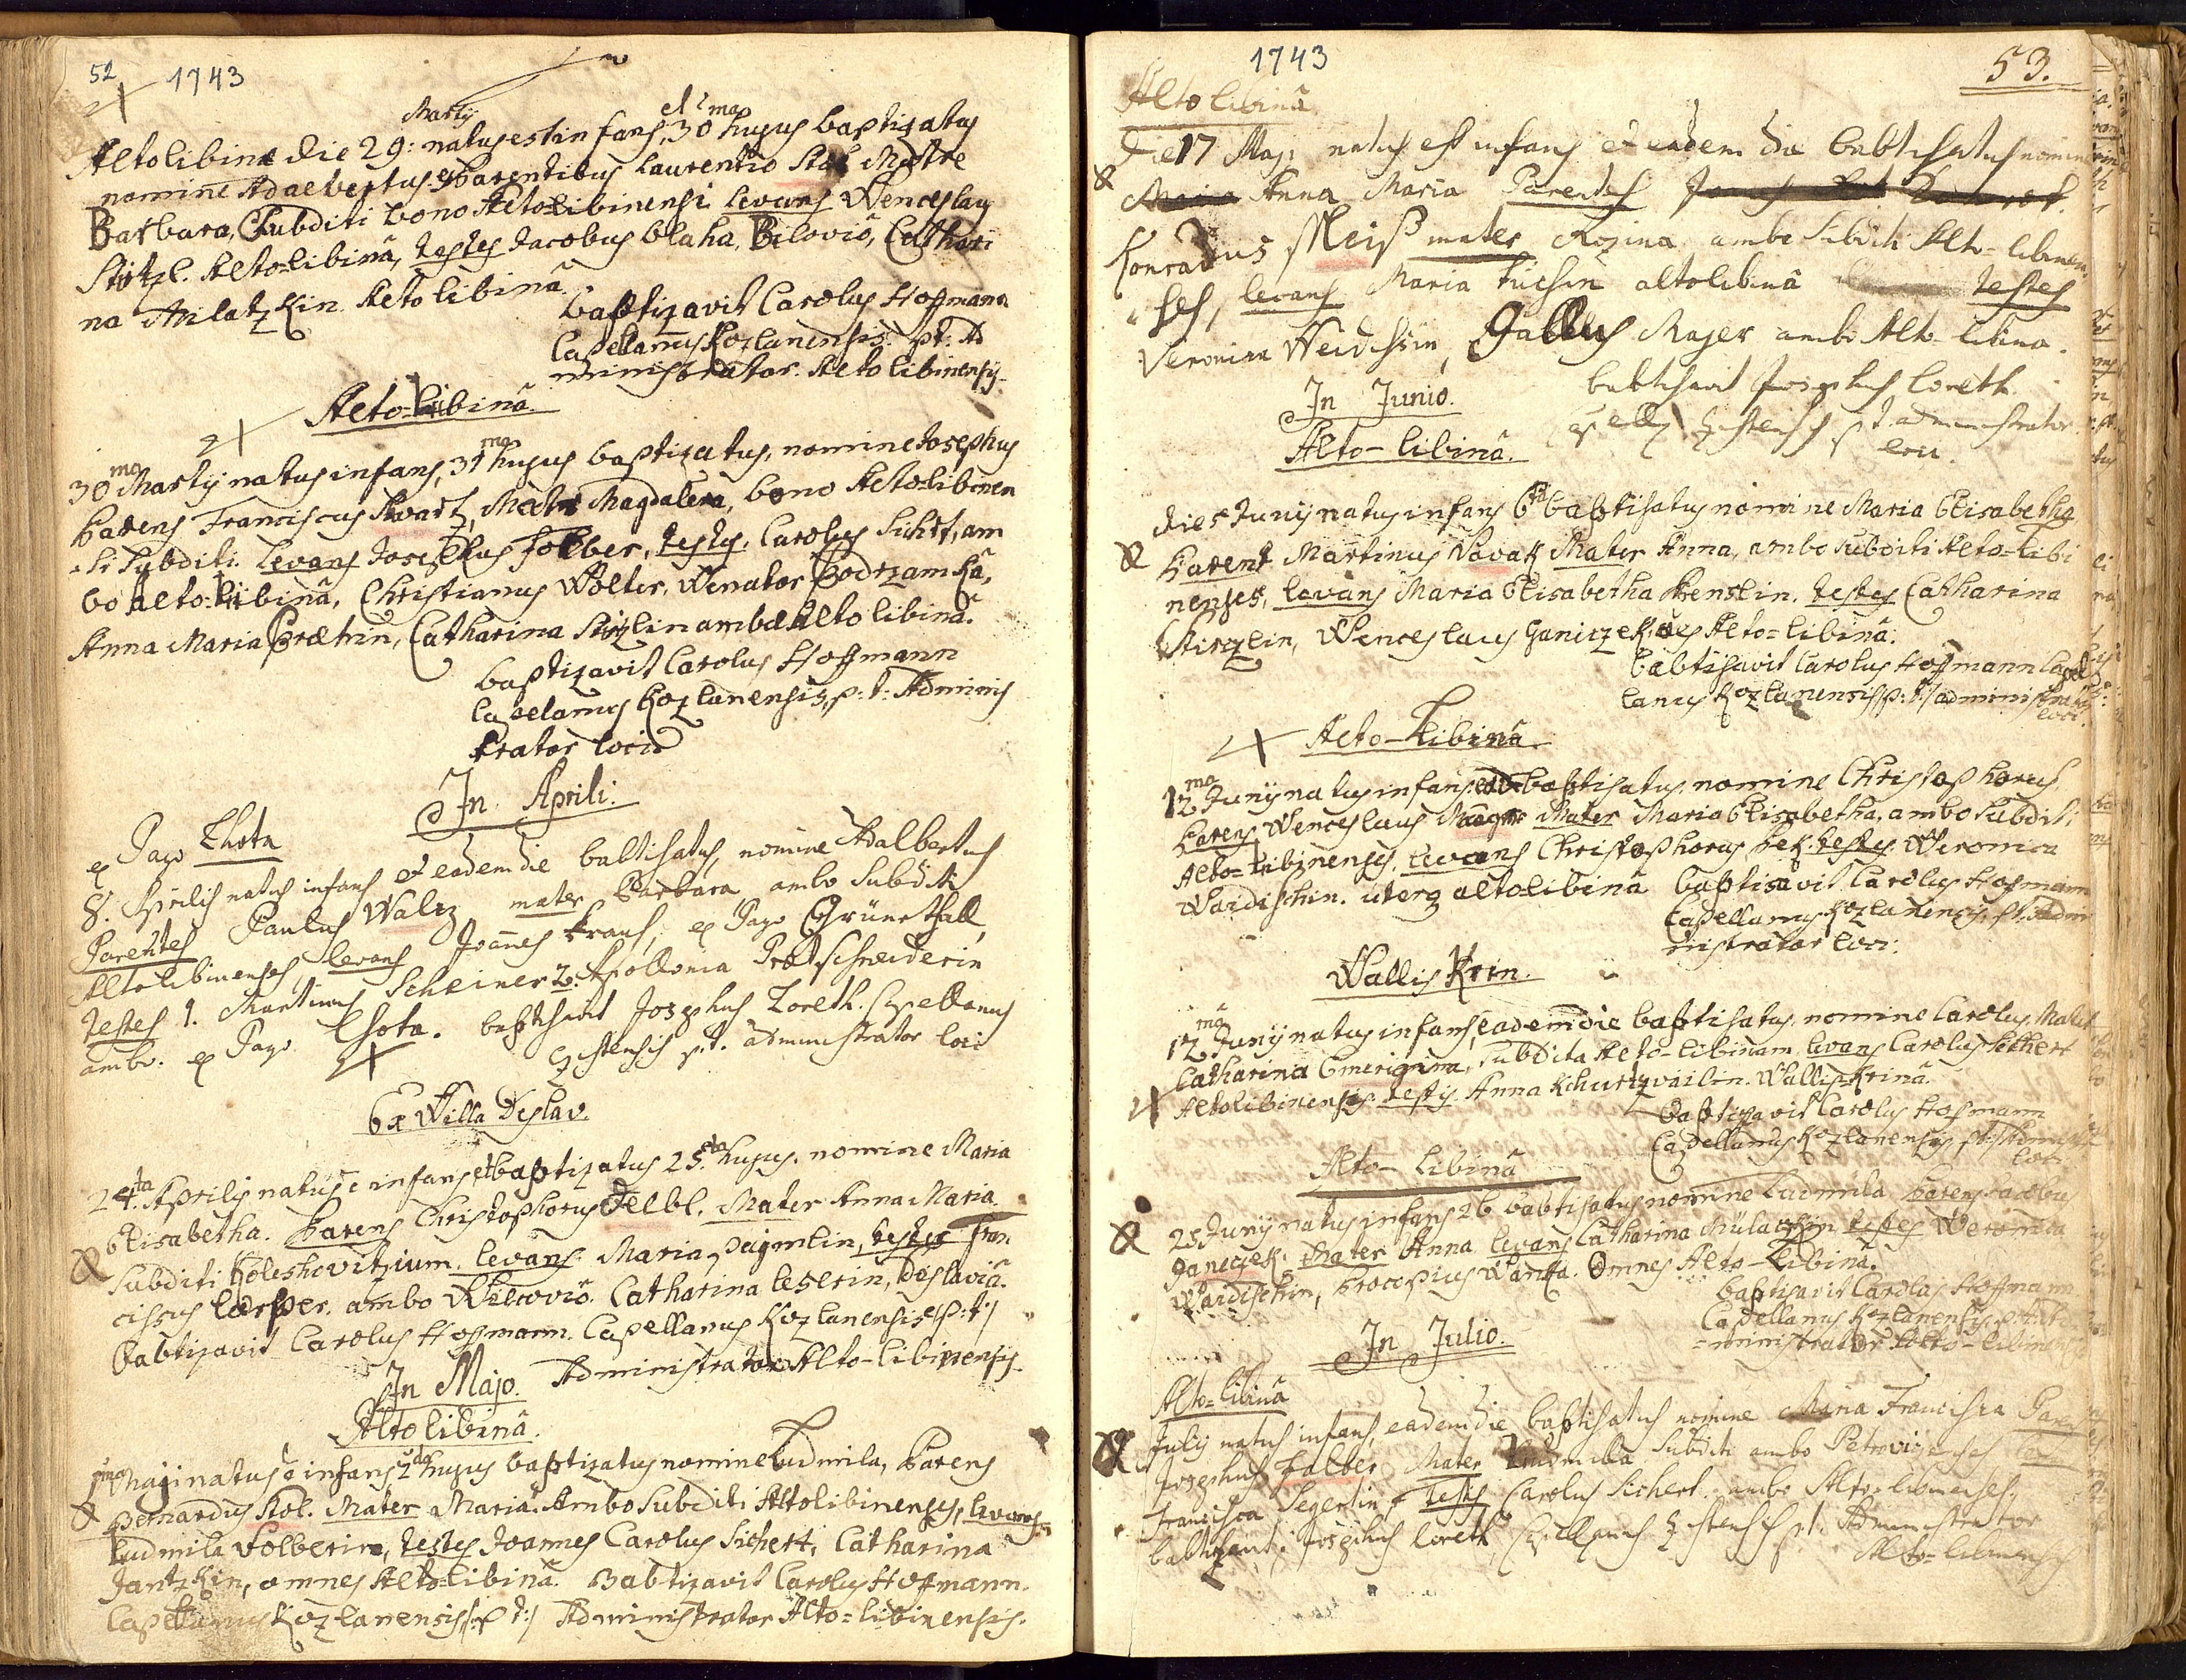 52 1743
Altolibinæ die 29: Martij natus est infans, et 30ma hujus baptizatus
nomine Adaelbertus ex parentibus Laurentio Matre
Barbara, Subditi bono Altolibinensi Levans Wenceslaus
Stitzl. Alto-libinâ, testes Jacobus blaha, Bilovio, Cathari
na Milatzkin Alto libinâ.
baptizavit Carolus Hoffmann
Capellanus Kozlanensis p: t: Ad
ministrator Alto libinensis.
Alto-libinâ
30ma Martij natus infans, 31ma hujus baptizatus, nomine Josephus
Parens Franciscus Swartz, Mater Magdalena, bono Alto-libinen
-si Subditi. Levans Josephus Folber, testes. Carolus Sichrt, am
bo alto-libinâ, Christianus Wolter, Venator Podrzamkâ,
Anna Maria Prætrin, Catharina Stitzlin ambæ Alto libinâ.
baptizavit Carolus Hoffmann
Capelanus Kozlanensis, p: t: Adminis
trator loci
In Aprili:
ex Pago Lhota
8. Aprilis natus infans et eadem die babtisatus, nomine Adalbertus
Parentes Paulus Waltz mater Barbara ambo Subditi
Altolibinenses, levans Joannes Kraus, ex Pago Grünethall,
testes 1. Martinus Scheiner 2. Apollonia Prætschneiderin
ambo. ex Pago Lhota. babtisavit Josephus Loreth. Capellanus
Zistensis p. t. administrator loci
Ex Willa Deslav.
24ta Aprilis natus e infans et baptizatus 25ta hujus. nomine Maria
Elisabetha. Parens Christophorus Felbl. Mater Anna Maria
Subditi Koleshovitzium. levans: Maria Pajmlin, testes Fran
ciscus Lorper. ambo Wilcovio. Catharina leserin, Deslaviâ.
Babtizavit Carolus Hofmann. Capellanus Kozlanensis p: t:
Administrator Alto-libinensis.
In Majo.
Alto libinâ.
1ma Maji natus e infans 2da hujus baptizatus nomine Ludmila, Parens
Bernardus Stol. Mater Maria. Ambo Subditi Altolibinenses, levans
Ludmila Folberin, testes Joannes Carolus Sichert, Catharina
Jantzkin, omnes Alto-libinâ. Babtizavit Carolus Hoffmann.
Capellanus Kozlanensis p: t: Administrator Alto-libinensis.
1743 53.
Alto libinâ
Die 17 Maji natus est infans et eadem die babtisatus nomine
Anna Maria Parentes
Konradus Meiß mater Rozina ambo Subditi Alto-libinen
ses, levans Maria altolibinâ testes
Veronica Weidisin, Gallus Majer ambo Alto-libina.
babtisavit Josephus Loreth
Capell. Zistensis p. t. administrator
loci.
In Junio.
Alto-libinâ.
Die 5 Junij natus infans 6ta babtisatus nomine Maria Elisabetha
Parent Martinus Novak Mater Anna, ambo Subditi Alto-libi
nenses, levans Maria Elisabetha Henslin. testes Catharina
Stirzlin, Wenceslaus Ganiczek, Alto-libinâ.
babtisavit Carolus Hoffmann Capel
lanus Kozlanensis p: t: administrator
loci.
Alto-Libinâ
12ma Junij natus infans, baptisatus nomine Christophorus
Parens Wenceslaus Mater Maria Elisabetha, ambo Subditi
Alto-Libinenses, Levans Christophorus Pek. testes Weronica
Waidischin. uterq altolibinâ baptisavit Carolus Hofmann
Capellanus Kozlanensis p. t. Admi
nistrator loci.
Wallis Krin.
12ma Junij natus infans, eadem die baptisatus, nomine Carolus, Mater
Catharina subdita Alto-libinam. levans Carolus Sichert
Altolibinensis. testis Anna Wallis-Krinâ.
Baptisavit Carolus Hofmann
Capellanus Kozlanensis p. t. Admin
loci
Alto-libinâ
25 Junij natus infans 26 babtisatus nomine Ludmila Parens Jacobus
Janeczek. Mater Anna levans Catharina testes Weronica
Waidischin, Procopius Wanka. Omnes Alto-Libinâ.
baptisavit Carolus Hoffmann
Capellanus Kozlanensis p. t. Ad
=ministrator Alto-libinensis
In Julio.
Alto-libinâ
9 Julij natus infans, eadem die baptisatus nomine Maria Francisca Parens
Josephus Falber, Mater Ludmilla Subditi ambo Petrovicenses
Francisca Segertin, testis Carolus Sichert. ambo Alto-libinenses,
babtizavit Josephus Loreth, Capellanus Zistensis p. t. Administrator
Alto-libinensis